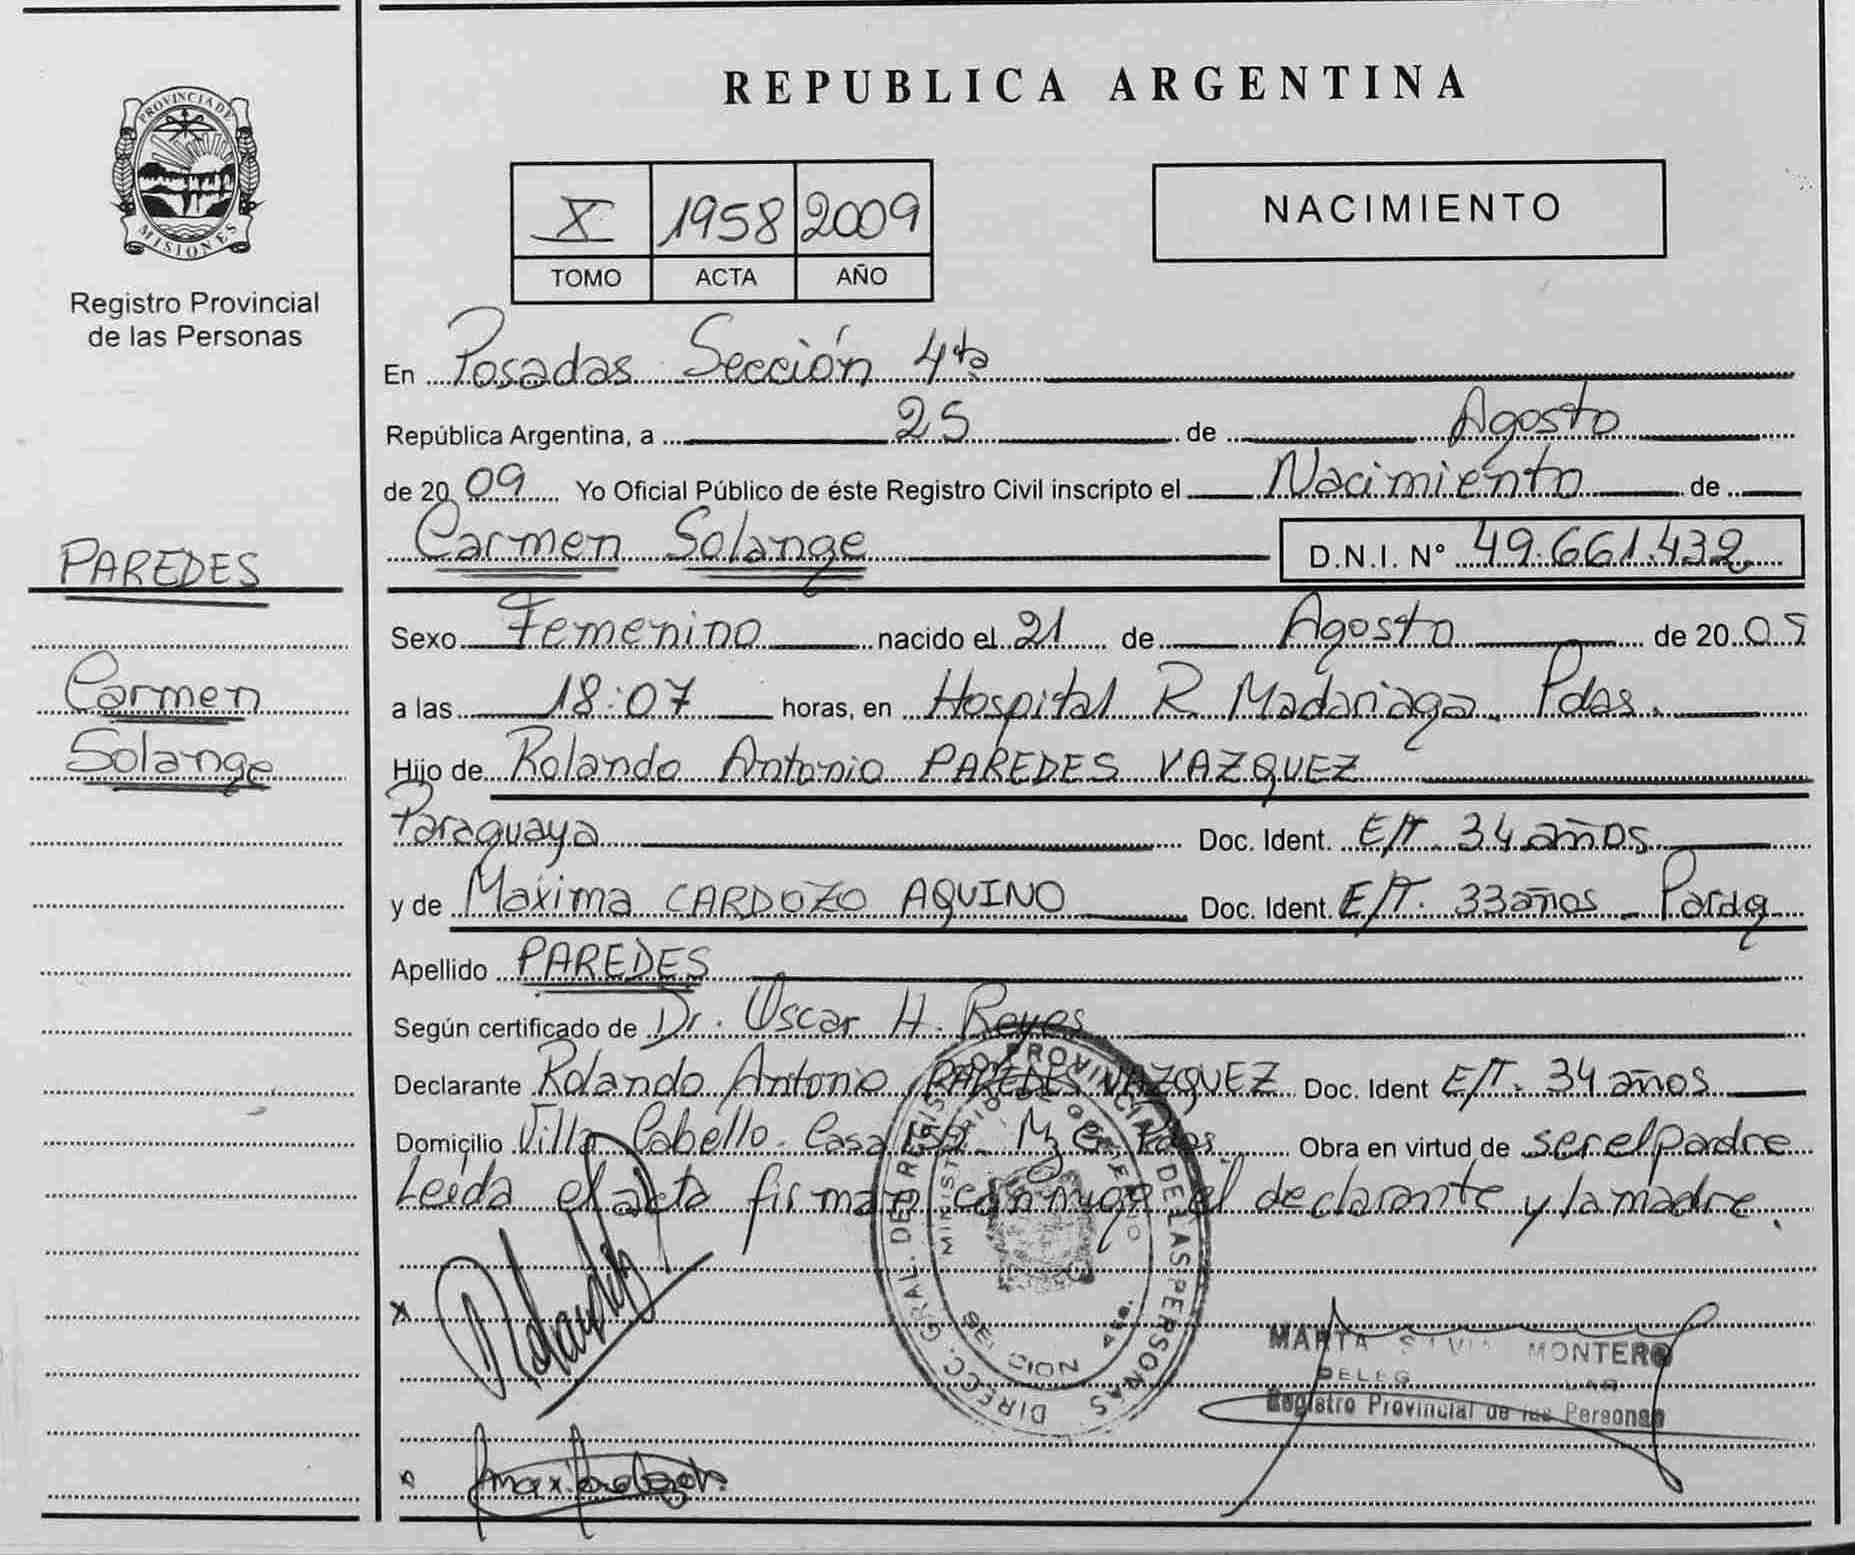 PROVINCIA DE
MISIONES
Registro Provincial
de las Personas
PAREDES
Carmen
Solange
REPUBLICA ARGENTINA
X 1958 2009
TOMO ACTA AÑO
NACIMIENTO
En Posadas Sección 4ta
República Argentina, a 25 de Agosto
de 2009 Yo Oficial Público de éste Registro Civil inscripto el Nacimiento de
Carmen Solange D.N.I. N° 49.661.432
Sexo Femenino nacido el 21 de Agosto de 2009
a las 18:07 horas, en Hospital R. Madariaga. Pdas.
Hijo de Rolando Antonio PAREDES VAZQUEZ
Paraguaya Doc. Ident. E/T. 34 años
y de Máxima CARDOZO AQUINO Doc. Ident. E/T. 33 años - Parag
Apellido PAREDES
Según certificado de Dr. Oscar H. Reyes
Declarante Rolando Antonio PAREDES VAZQUEZ Doc. Ident E/T. 34 años
Domicilio Villa Cabello. Casa Mz Pdas. Obra en virtud de ser el padre
Leída el acta firman conmigo el declarante y la madre.
DIRECC. GRAL. DE REGISTRO PROVINCIAL DE LAS PERSONAS
MINISTERIO DE GOBIERNO
x Rolando
MARTA SILVIA MONTERO
DELEG
Registro Provincial de las Personas